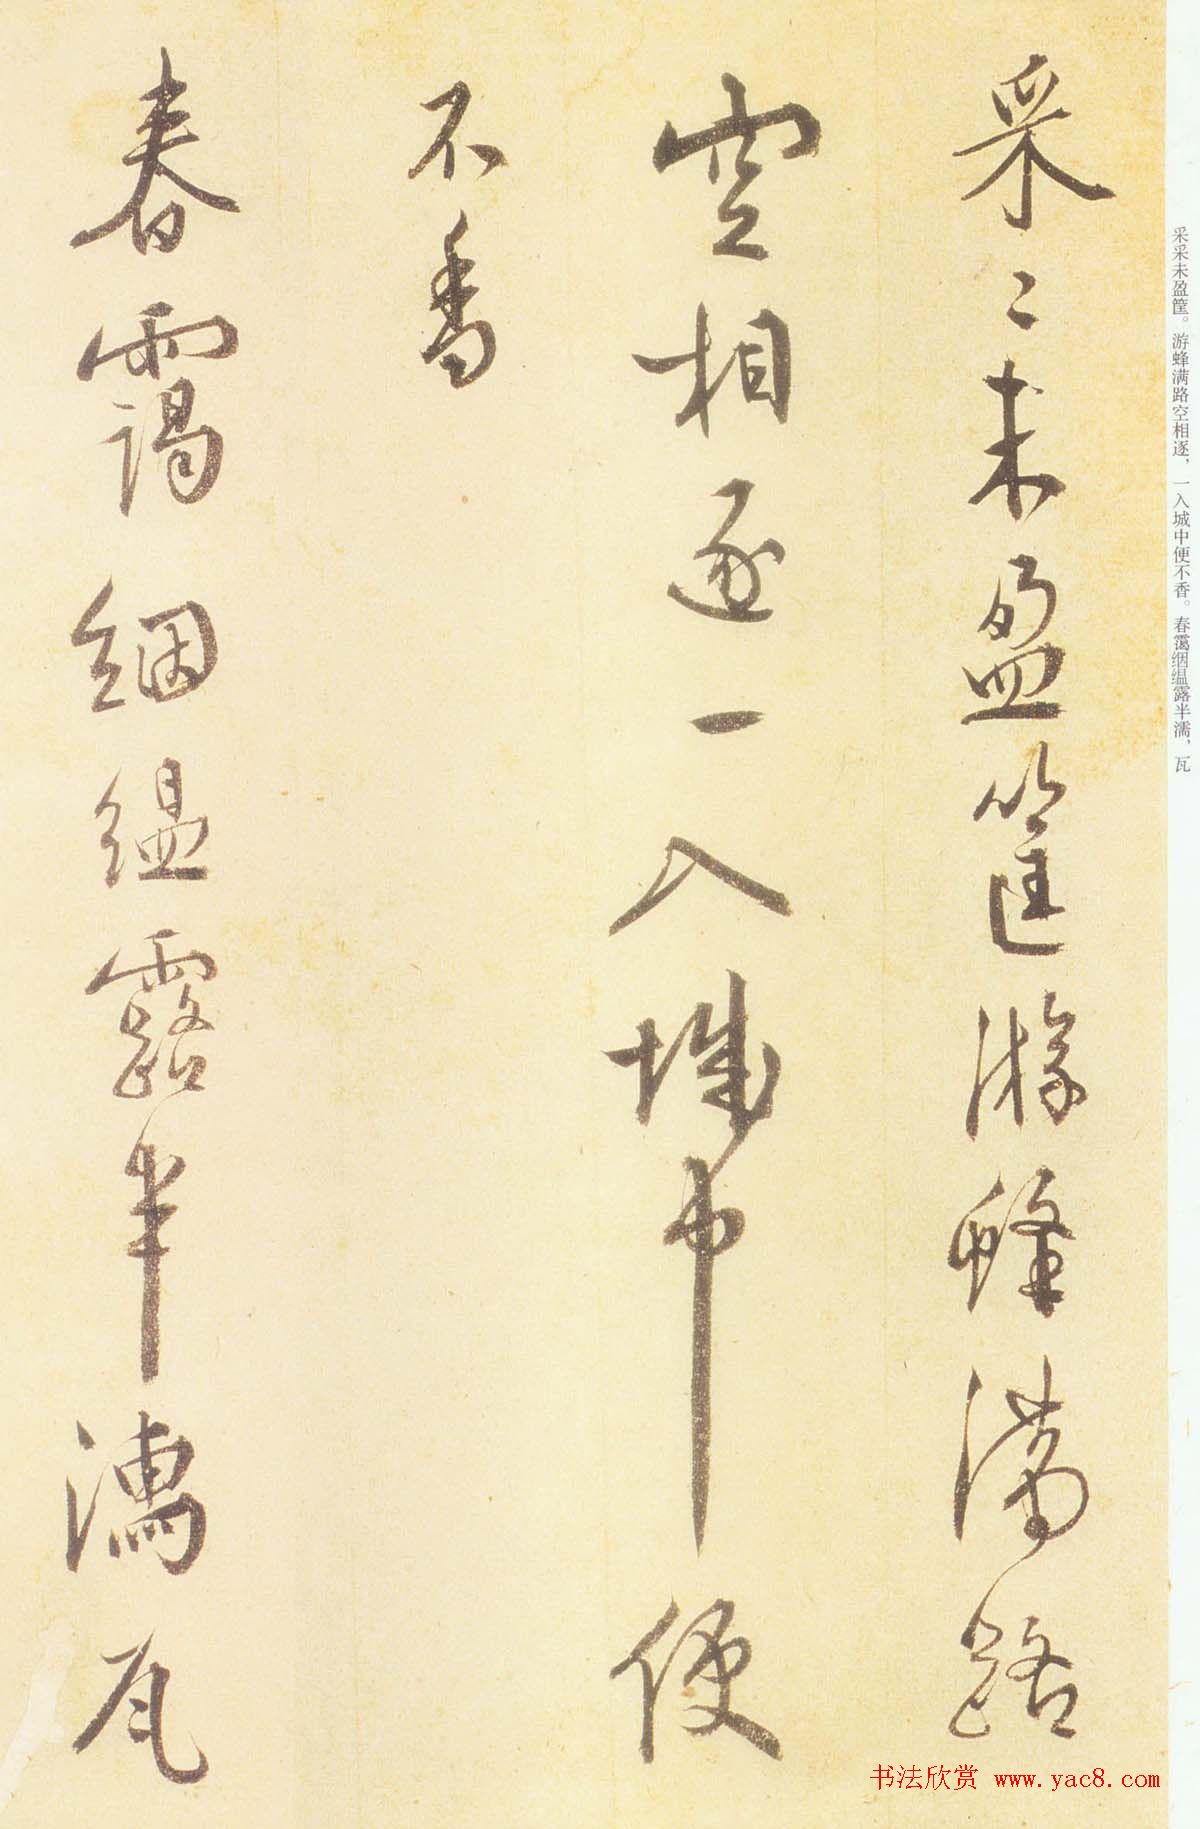 采采未盈筐。游蜂满路空相逐，一入城中便不香。春霭绸缊露半濡，瓦
采〻未盈筐游蜂満路
空相逐一入城中便
不香
春靄絪縕露半濡瓦
书法欣赏 www.yac8.com